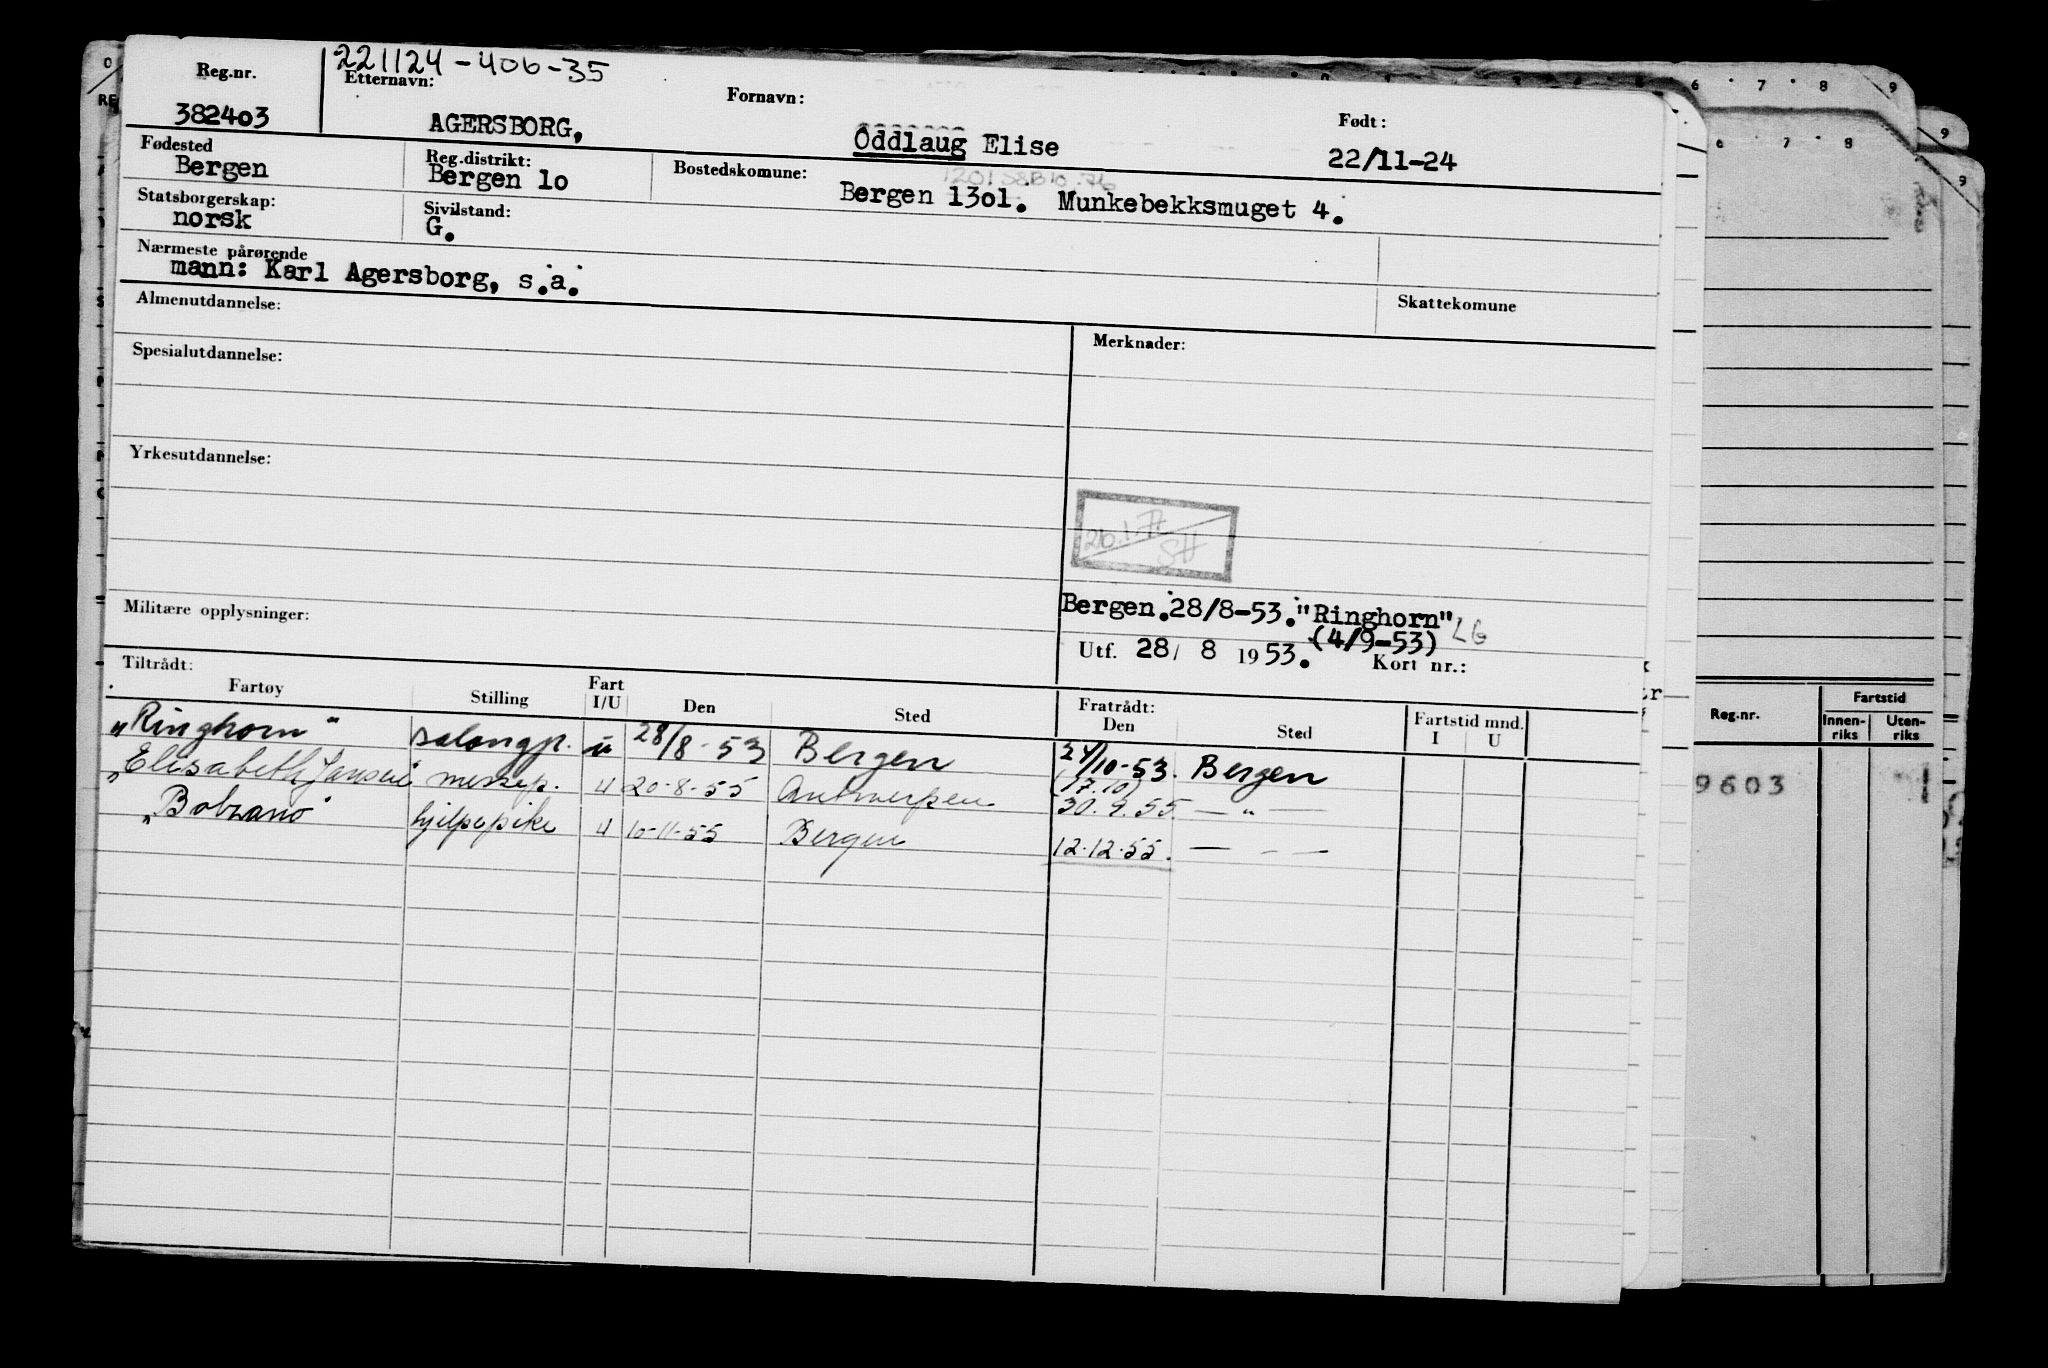 221124-406-35
Reg.nr. Etternavn: Fornavn: Født:
382403 AGERSBORG, Oddlaug Elise 22/11-24
Fødested Reg.distrikt: Bostedskomune:
Bergen Bergen 10 Bergen 1301. Munkebekksmuget 4.
Statsborgerskap: Sivilstand:
norsk G.
Nærmeste pårørende
mann: Karl Agersborg, s.a.
Almenutdannelse: Skattekomune
Spesialutdannelse: Merknader:
Yrkesutdannelse:
SH
Militære opplysninger: Bergen.28/8-53."Ringhorn" LG
(4/9-53)
Utf. 28/ 8 1953. Kort nr.:
Tiltrådt: Fratrådt:
Fartøy Stilling Fart I/U Den Sted Den Sted Fartstid mnd. I U
"Ringhorn" salongp. u 28/8-53 Bergen 24/10-53. Bergen
(17.10)
"Elisabeth Jansen" messep. u 20-8-55 Antwerpen 30.9.55 — " —
"Bolzano" hjelpepike u 10-11-55 Bergen 12.12.55. — - —
Reg.nr. Fartstid
Innen-riks Uten-riks
9603
6 7 8 9
6 7 8 9
9